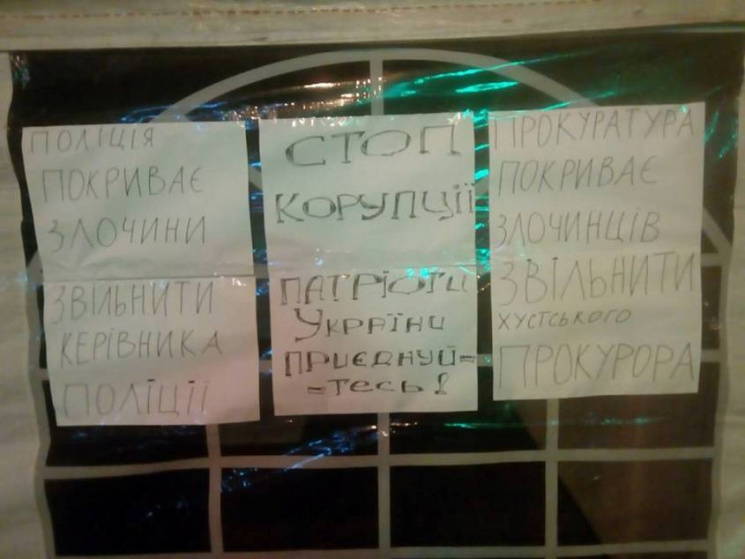 ПОЛІЦІЯ
ПОКРИВАЄ
ЗЛОЧИНИ
ЗВІЛЬНИТИ
КЕРІВНИКА
ПОЛІЦІЇ
СТОП
КОРУПЦІЇ
ПАТРІОТИ
УКРАЇНИ
ПРИЄДНУЙ=
=ТЕСЬ!
ПРОКУРАТУРА
ПОКРИВАЄ
ЗЛОЧИНЦІВ
ЗВІЛЬНИТИ
ХУСТСЬКОГО
ПРОКУРОРА